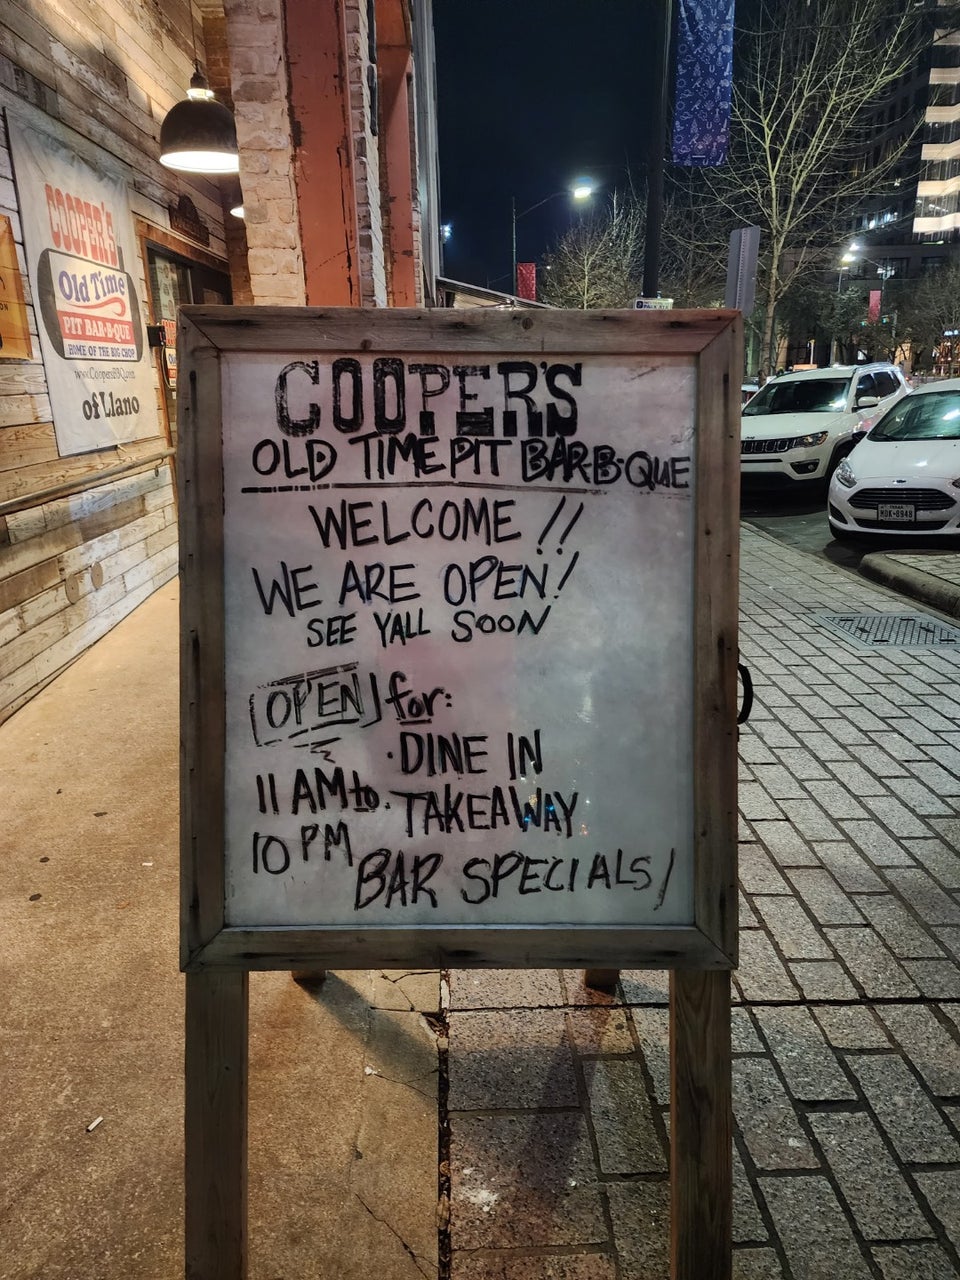 COOPER'S
Old Time
PIT BAR-B-QUE
HOME OF THE BIG CHOP
www.CoopersBBQ.com
of Llano
COOPER'S
OLD TIME PIT BAR-B-QUE
WELCOME!!
WE ARE OPEN!
SEE YALL SOON
OPEN for:
· DINE IN
11 AM to · TAKEAWAY
10 PM
BAR SPECIALS!
TEXAS